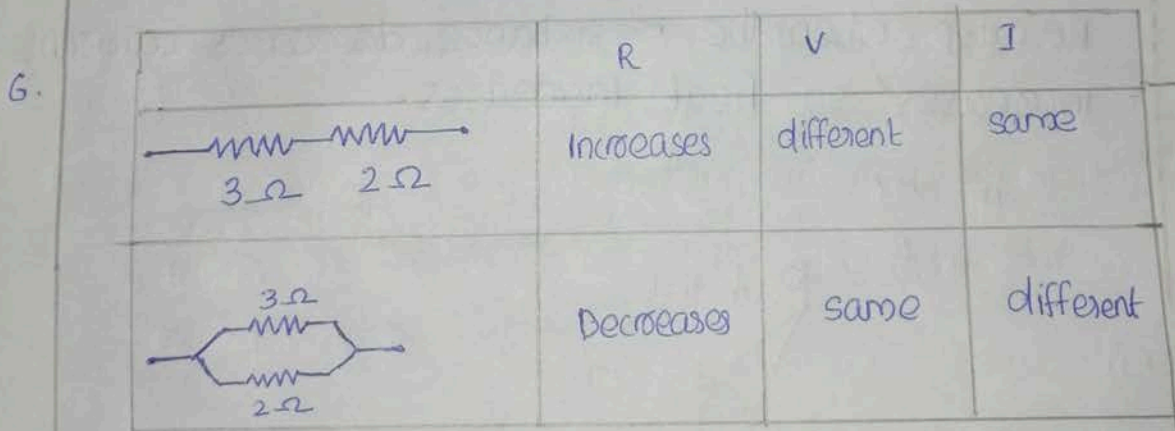 6.
R V I
Increases different same
3Ω 2Ω
3Ω
Decreases same different
2Ω